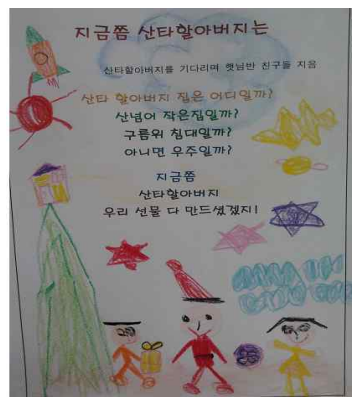 지금쯤 산타할아버지는
산타할아버지를 기다리며 햇님반 친구들 지음
산타 할아버지 집은 어디일까?
산넘어 작은집일까?
구름위 침대일까?
아니면 우주일까?
지금쯤
산타할아버지
우리 선물 다 만드셨겠지!